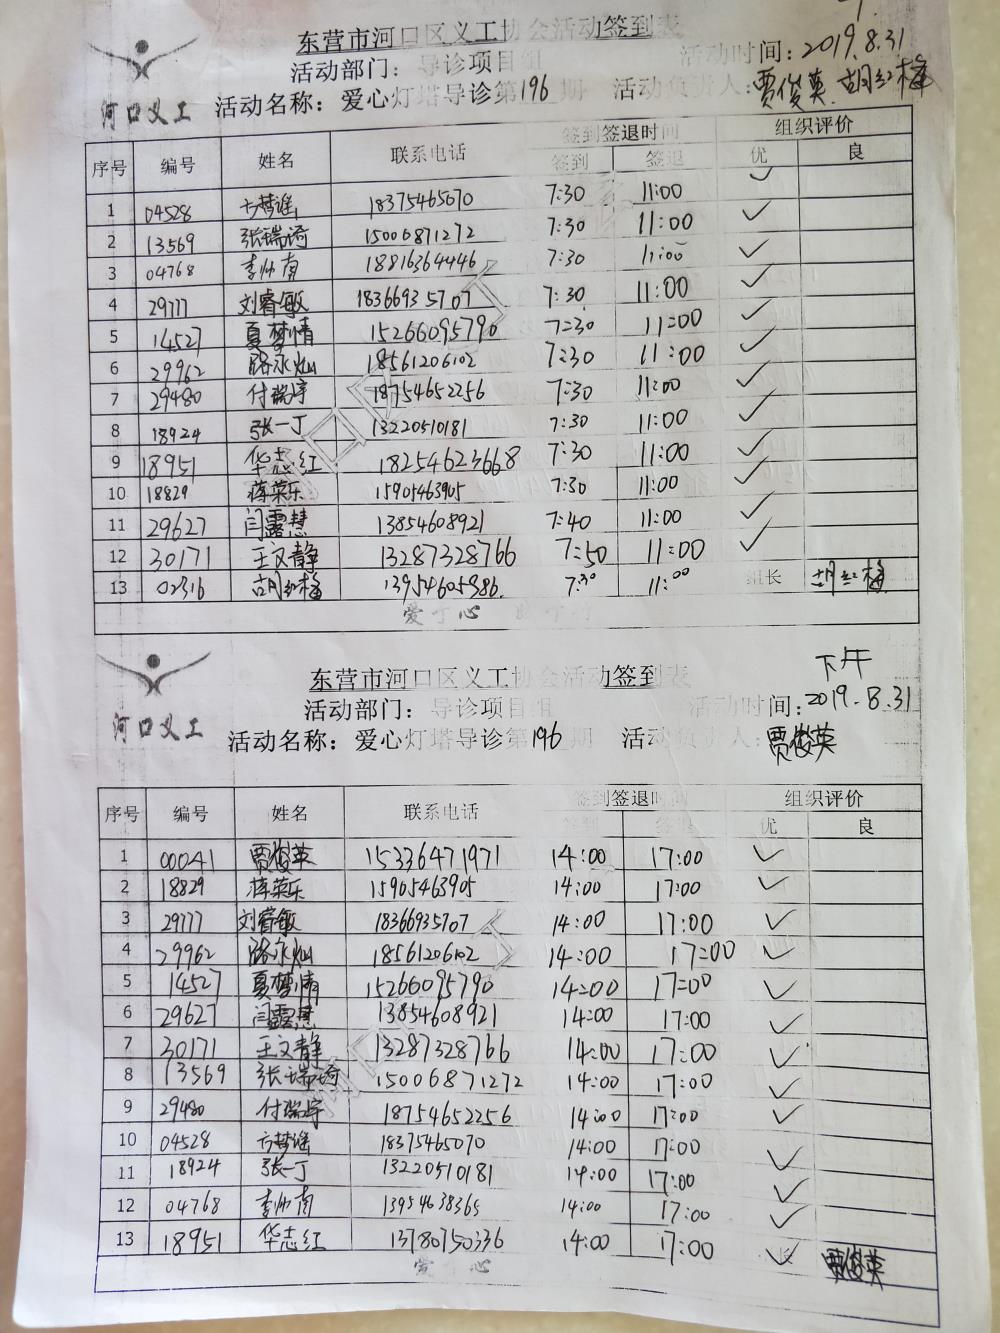 东营市河口区义工协会活动签到表
活动部门：导诊项目组 活动时间：2019.8.31
河口义工 活动名称：爱心灯塔导诊第196期 活动负责人：贾俊英 胡红梅
序号 编号 姓名 联系电话 签到签退时间 组织评价
签到 签退 优 良
1 04528 方梦谣 18375465070 7:30 11:00 ✓
2 13569 张瑞琦 15006871272 7:30 11:00 ✓
3 04768 李帅南 18816364446 7:30 11:00 ✓
4 29777 刘睿敏 18366935707 7:30 11:00 ✓
5 14527 夏梦情 15266095790 7:30 11:00 ✓
6 29962 路永灿 18561206102 7:30 11:00 ✓
7 29480 付瑞宇 18754652256 7:30 11:00 ✓
8 18924 张一丁 13220510181 7:30 11:00 ✓
9 18951 华志红 18254623668 7:30 11:00 ✓
10 18829 蒋荣乐 15905463905 7:30 11:00 ✓
11 29627 闫露慧 13854608921 7:40 11:00 ✓
12 30171 王文静 13287328766 7:50 11:00 ✓
13 02316 胡红梅 13954605386 7:30 11:00 组长 胡红梅
爱心
下午
东营市河口区义工协会活动签到表
活动部门：导诊项目组 活动时间：2019.8.31
河口义工 活动名称：爱心灯塔导诊第196期 活动负责人：贾俊英
序号 编号 姓名 联系电话 签到签退时间 组织评价
签到 签退 优 良
1 00041 贾俊英 15336471971 14:00 17:00 ✓
2 18829 蒋荣乐 15905463905 14:00 17:00 ✓
3 29777 刘睿敏 18366935707 14:00 17:00 ✓
4 29962 路永灿 18561206102 14:00 17:00 ✓
5 14527 夏梦情 15266095790 14:00 17:00 ✓
6 29627 闫露慧 13854608921 14:00 17:00 ✓
7 30171 王文静 13287328766 14:00 17:00 ✓
8 13569 张瑞琦 15006871272 14:00 17:00 ✓
9 29480 付瑞宇 18754652256 14:00 17:00 ✓
10 04528 方梦谣 18375465070 14:00 17:00 ✓
11 18924 张一丁 13220510181 14:00 17:00 ✓
12 04768 李帅南 13954638365 14:00 17:00 ✓
13 18951 华志红 13780750336 14:00 17:00 ✓ 贾俊英
爱心